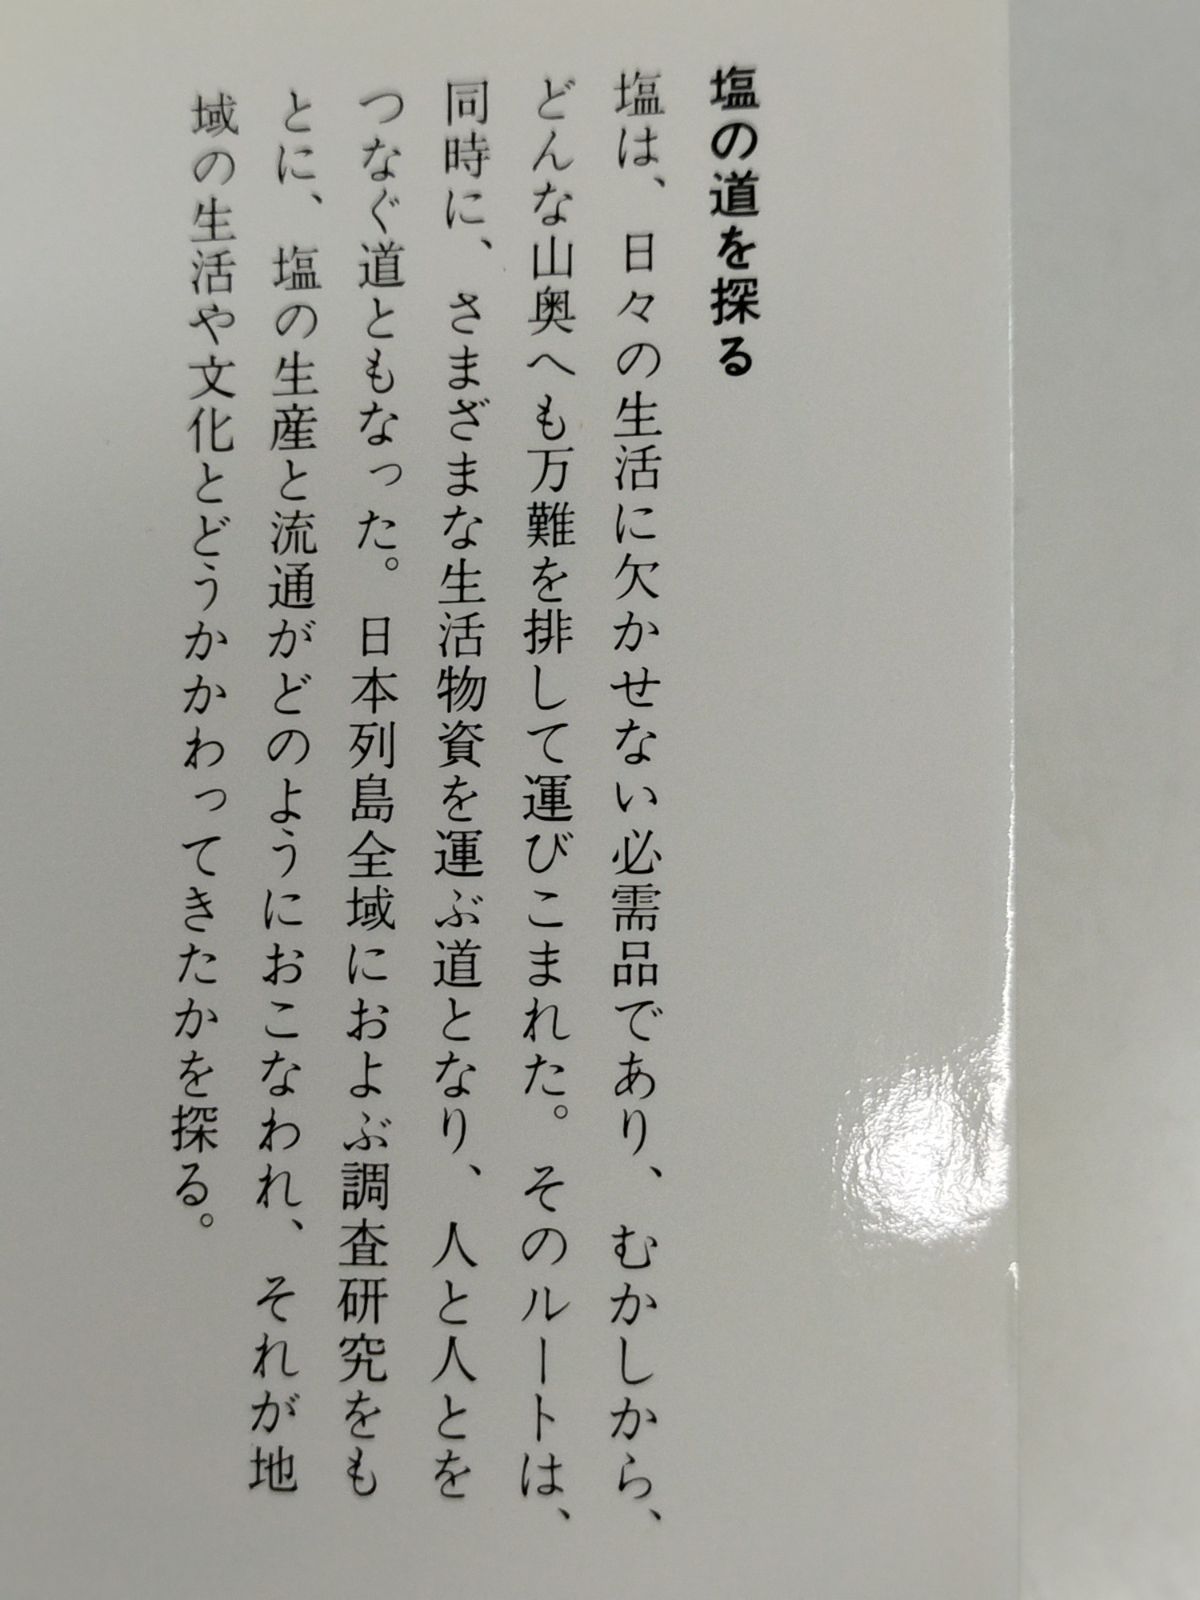 塩の道を探る
塩は、日々の生活に欠かせない必需品であり、むかしから、
どんな山奥へも万難を排して運びこまれた。そのルートは、
同時に、さまざまな生活物資を運ぶ道となり、人と人とを
つなぐ道ともなった。日本列島全域におよぶ調査研究をも
とに、塩の生産と流通がどのようにおこなわれ、それが地
域の生活や文化とどうかかわってきたかを探る。